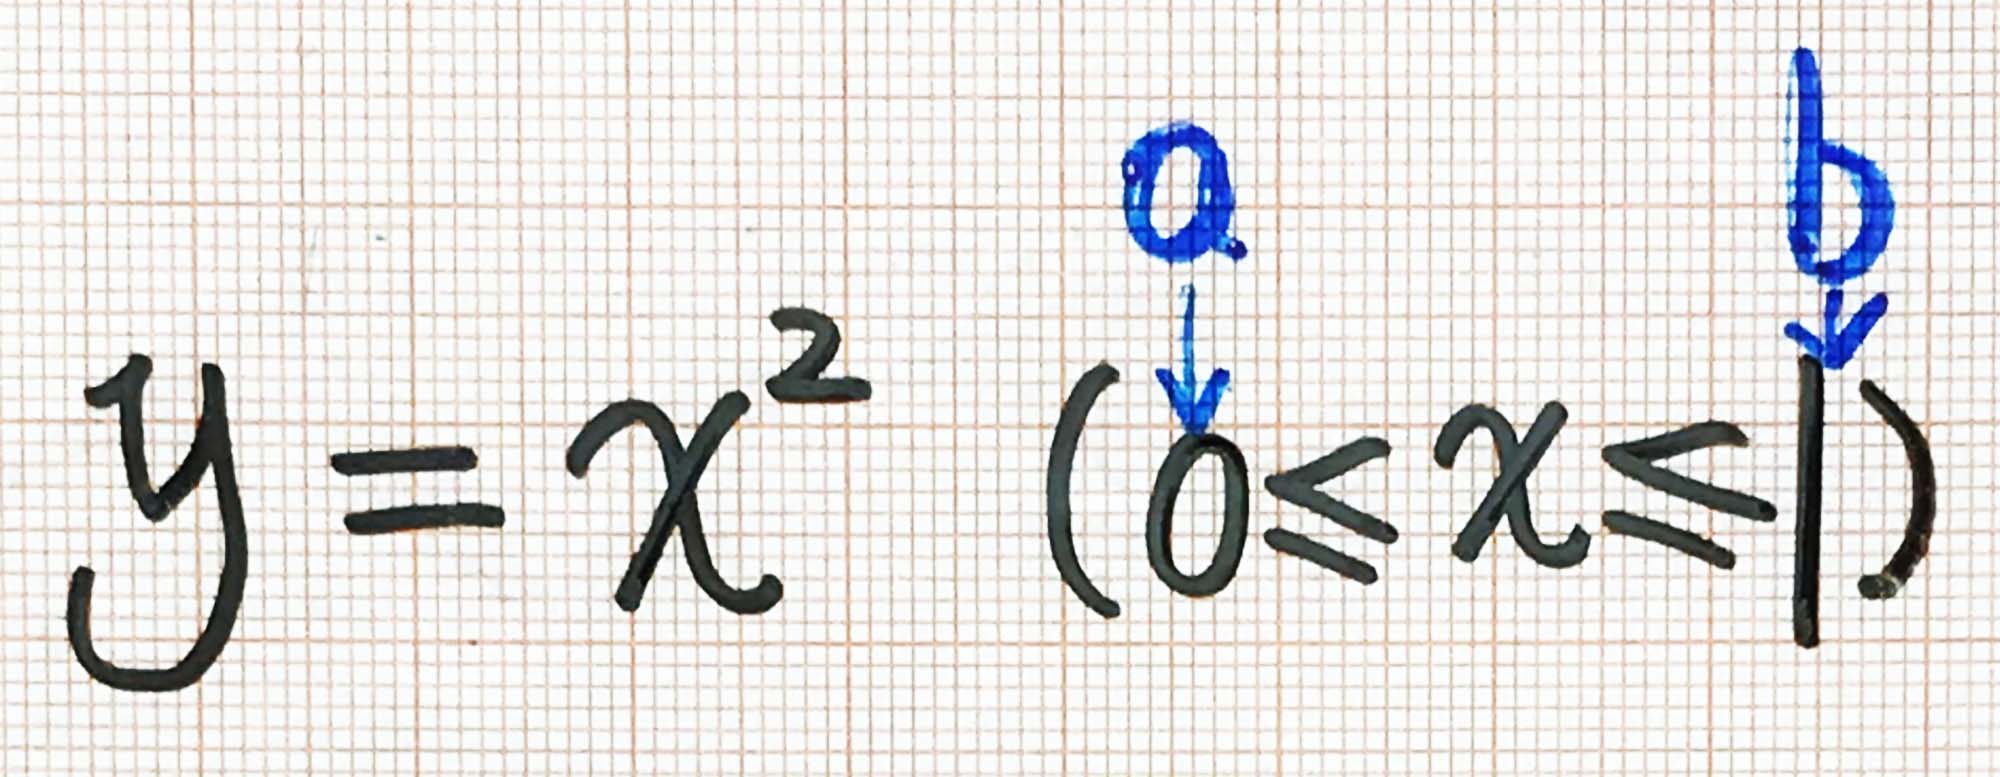 a b
y = x² (0 ≦ x ≦ 1)